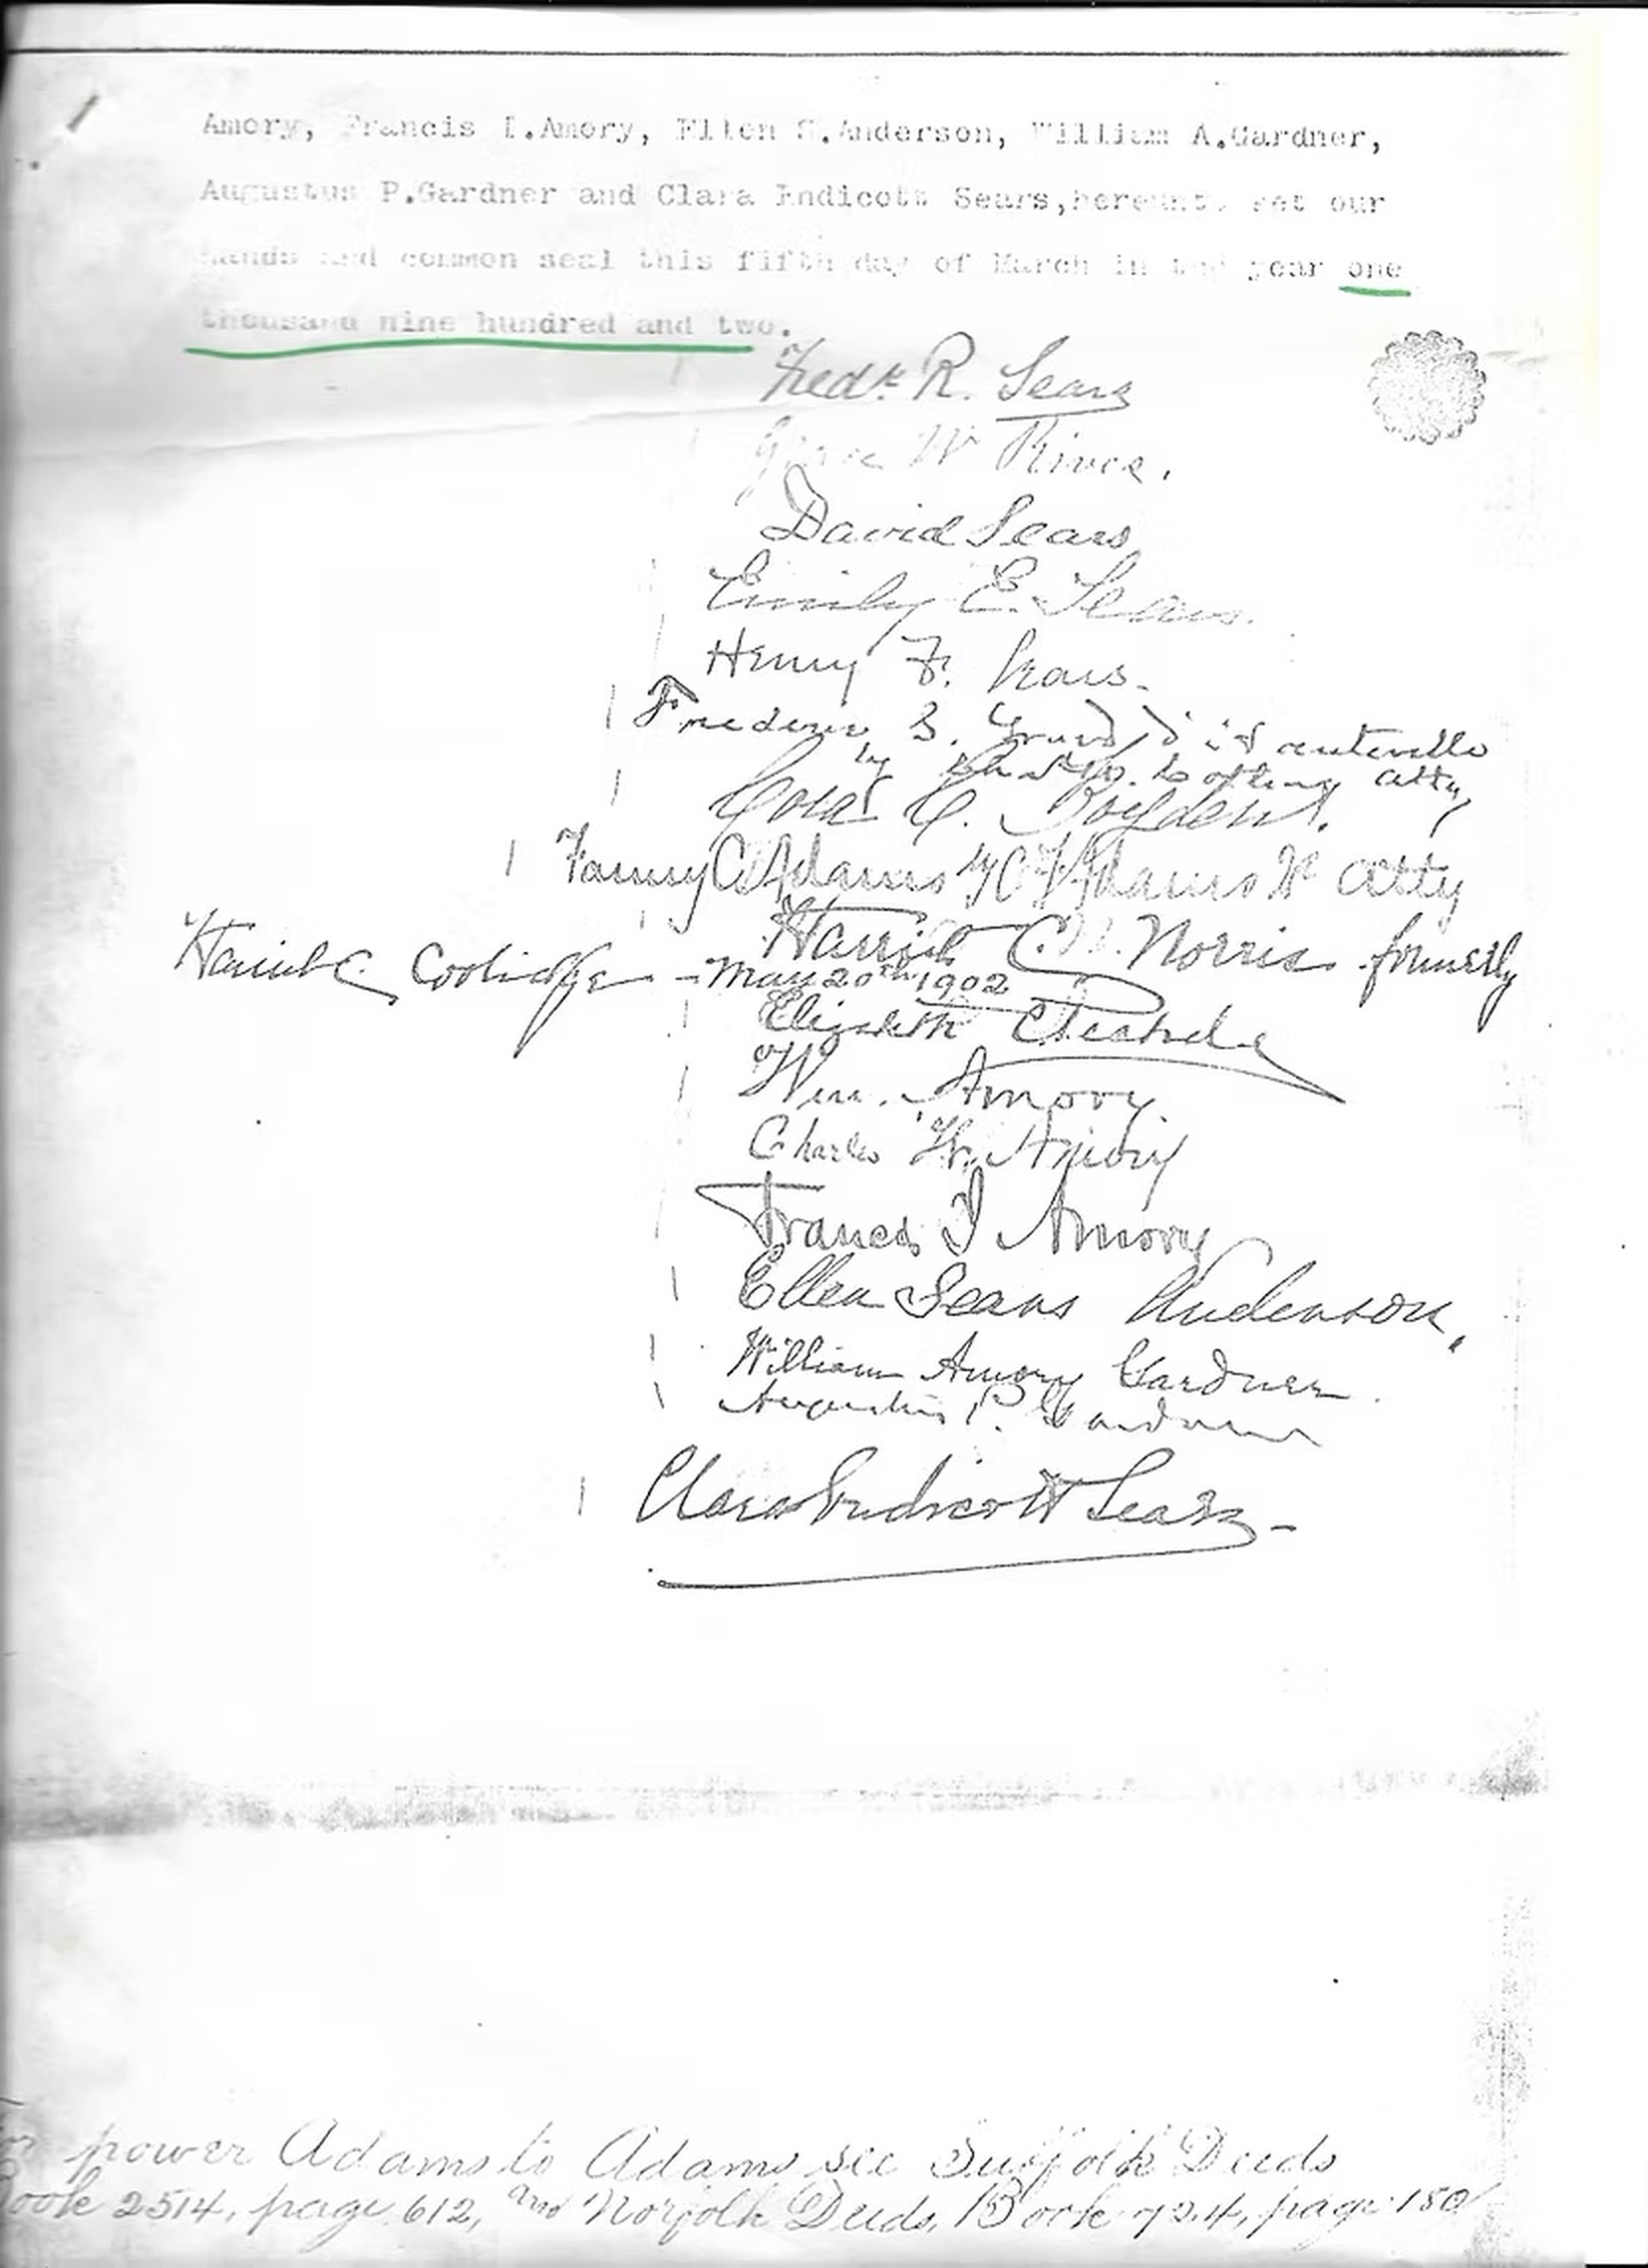 Amory, Francis I.Amory, Ellen S.Anderson, William A.Gardner,
Augustus P.Gardner and Clara Endicott Sears,hereunto set our
hands and common seal this fifth day of March in the year one
thousand nine hundred and two.
Fredk. R. Sears
Grace W Rives.
David Sears
Emily E. Sears.
Henry F. Sears.
Frederic S. Grand d'Hauteville
by atty
Cora C. Boyden.
Fanny C Adams by C F Adams 2d atty
Harriet C. Norris formerly
Harriet C. Coolidge - May 20th 1902
Elizabeth
Wm. Amory.
Charles W. Amory
Francis I Amory
Ellen Sears Anderson,
William Amory Gardner.
Augustus P. Gardner
Clara Endicott Sears-
power Adams to Adams see Suffolk Deeds
Book 2514, page 612, and Norfolk Deeds, Book 724, page 150